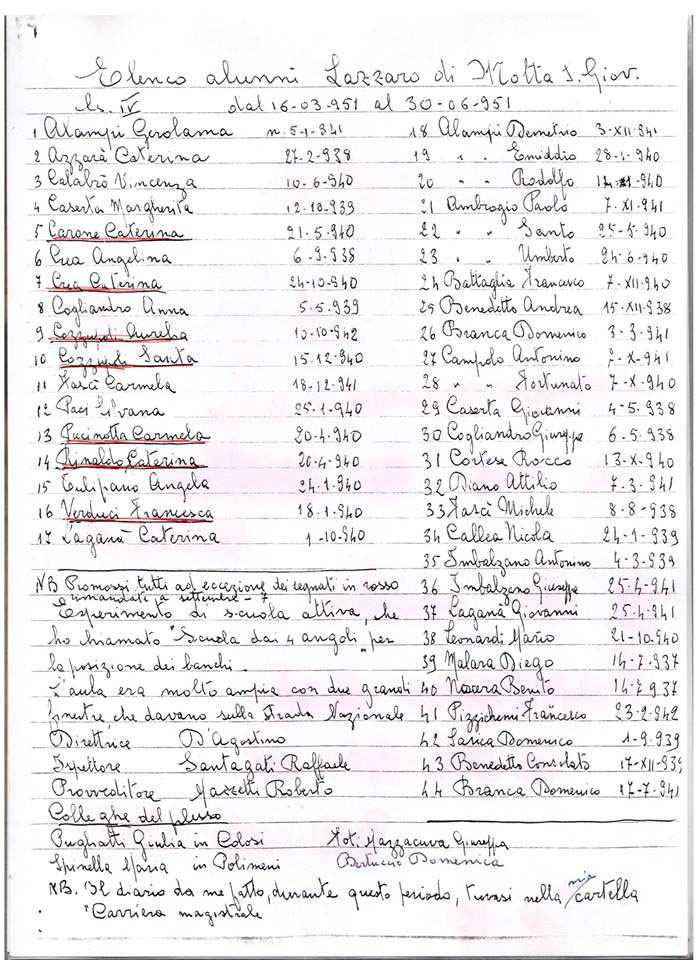 Elenco alunni Lazzaro di Motta S. Giov.
cls. IV dal 16-03-951 al 30-06-951
1 Alampi Gerolama n. 5-1-941
2 Azzarà Caterina 27-2-938
3 Calabrò Vincenza 10-6-940
4 Caserta Margherita 12-10-939
5 Carone Caterina 21-5-940
6 Crea Angelina 6-9-938
7 Crea Caterina 24-10-940
8 Cogliandro Anna 5-5-939
9 Cozzupoli Aurelia 10-10-942
10 Cozzupoli Santa 15-12-940
11 Fascì Carmela 18-12-941
12 Paci Silvana 25-1-940
13 Pucinotta Carmela 20-4-940
14 Rinaldo Caterina 20-4-940
15 Tulipano Angela 24-1-940
16 Verduci Francesca 18-1-940
17 Laganà Caterina 1-10-940
18 Alampi Demetrio 3-XII-941
19 " " Emiddio 28-1-940
20 " " Rodolfo
21 Ambrogio Paolo 7-XI-941
22 " " Santo 25-5-940
23 " " Umberto 24-6-940
24 Battaglia Francesco 7-XII-940
25 Benedetto Andrea 15-XII-938
26 Branca Domenico 3-3-941
27 Campolo Antonino 7-X-941
28 " " Fortunato 7-X-940
29 Caserta Giovanni 4-5-938
30 Cogliandro Giuseppe 6-5-938
31 Cortese Rocco 13-X-940
32 Diano Attilio 7-3-941
33 Fascì Michele 8-8-938
34 Callea Nicola 24-1-939
35 Imbalzano Antonino 4-3-939
36 Imbalzano Giuseppe 25-4-941
37 Laganà Giovanni 25-4-941
38 Leonardi Mario 21-10-940
39 Malara Diego 14-7-937
40 Nocera Benito 14-7-937
41 Pizzichemi Francesco 23-2-942
42 Sarica Domenico 1-9-939
43 Benedetto Consolato 17-XII-939
44 Branca Domenico 17-7-941
NB Promossi tutti ad eccezione dei segnati in rosso
rimandati a settembre - 7
Esperimento di scuola attiva, che
ho chiamato "Scuola dai 4 angoli" per
la posizione dei banchi.
L'aula era molto ampia con due grandi
finestre, che davano sulla Strada Nazionale
Direttrice D'Agostino
Ispettore Santagati Raffaele
Provveditore Mazzetti Roberto
Colleghe del plesso
Pugliatti Giulia in Colosi Not. Mazzacuva Giuseppa
Spinella Maria in Polimeni Bertuccio Domenica
NB. Il diario da me fatto, durante questo periodo, trovasi nella mia cartella
"Carriera magistrale